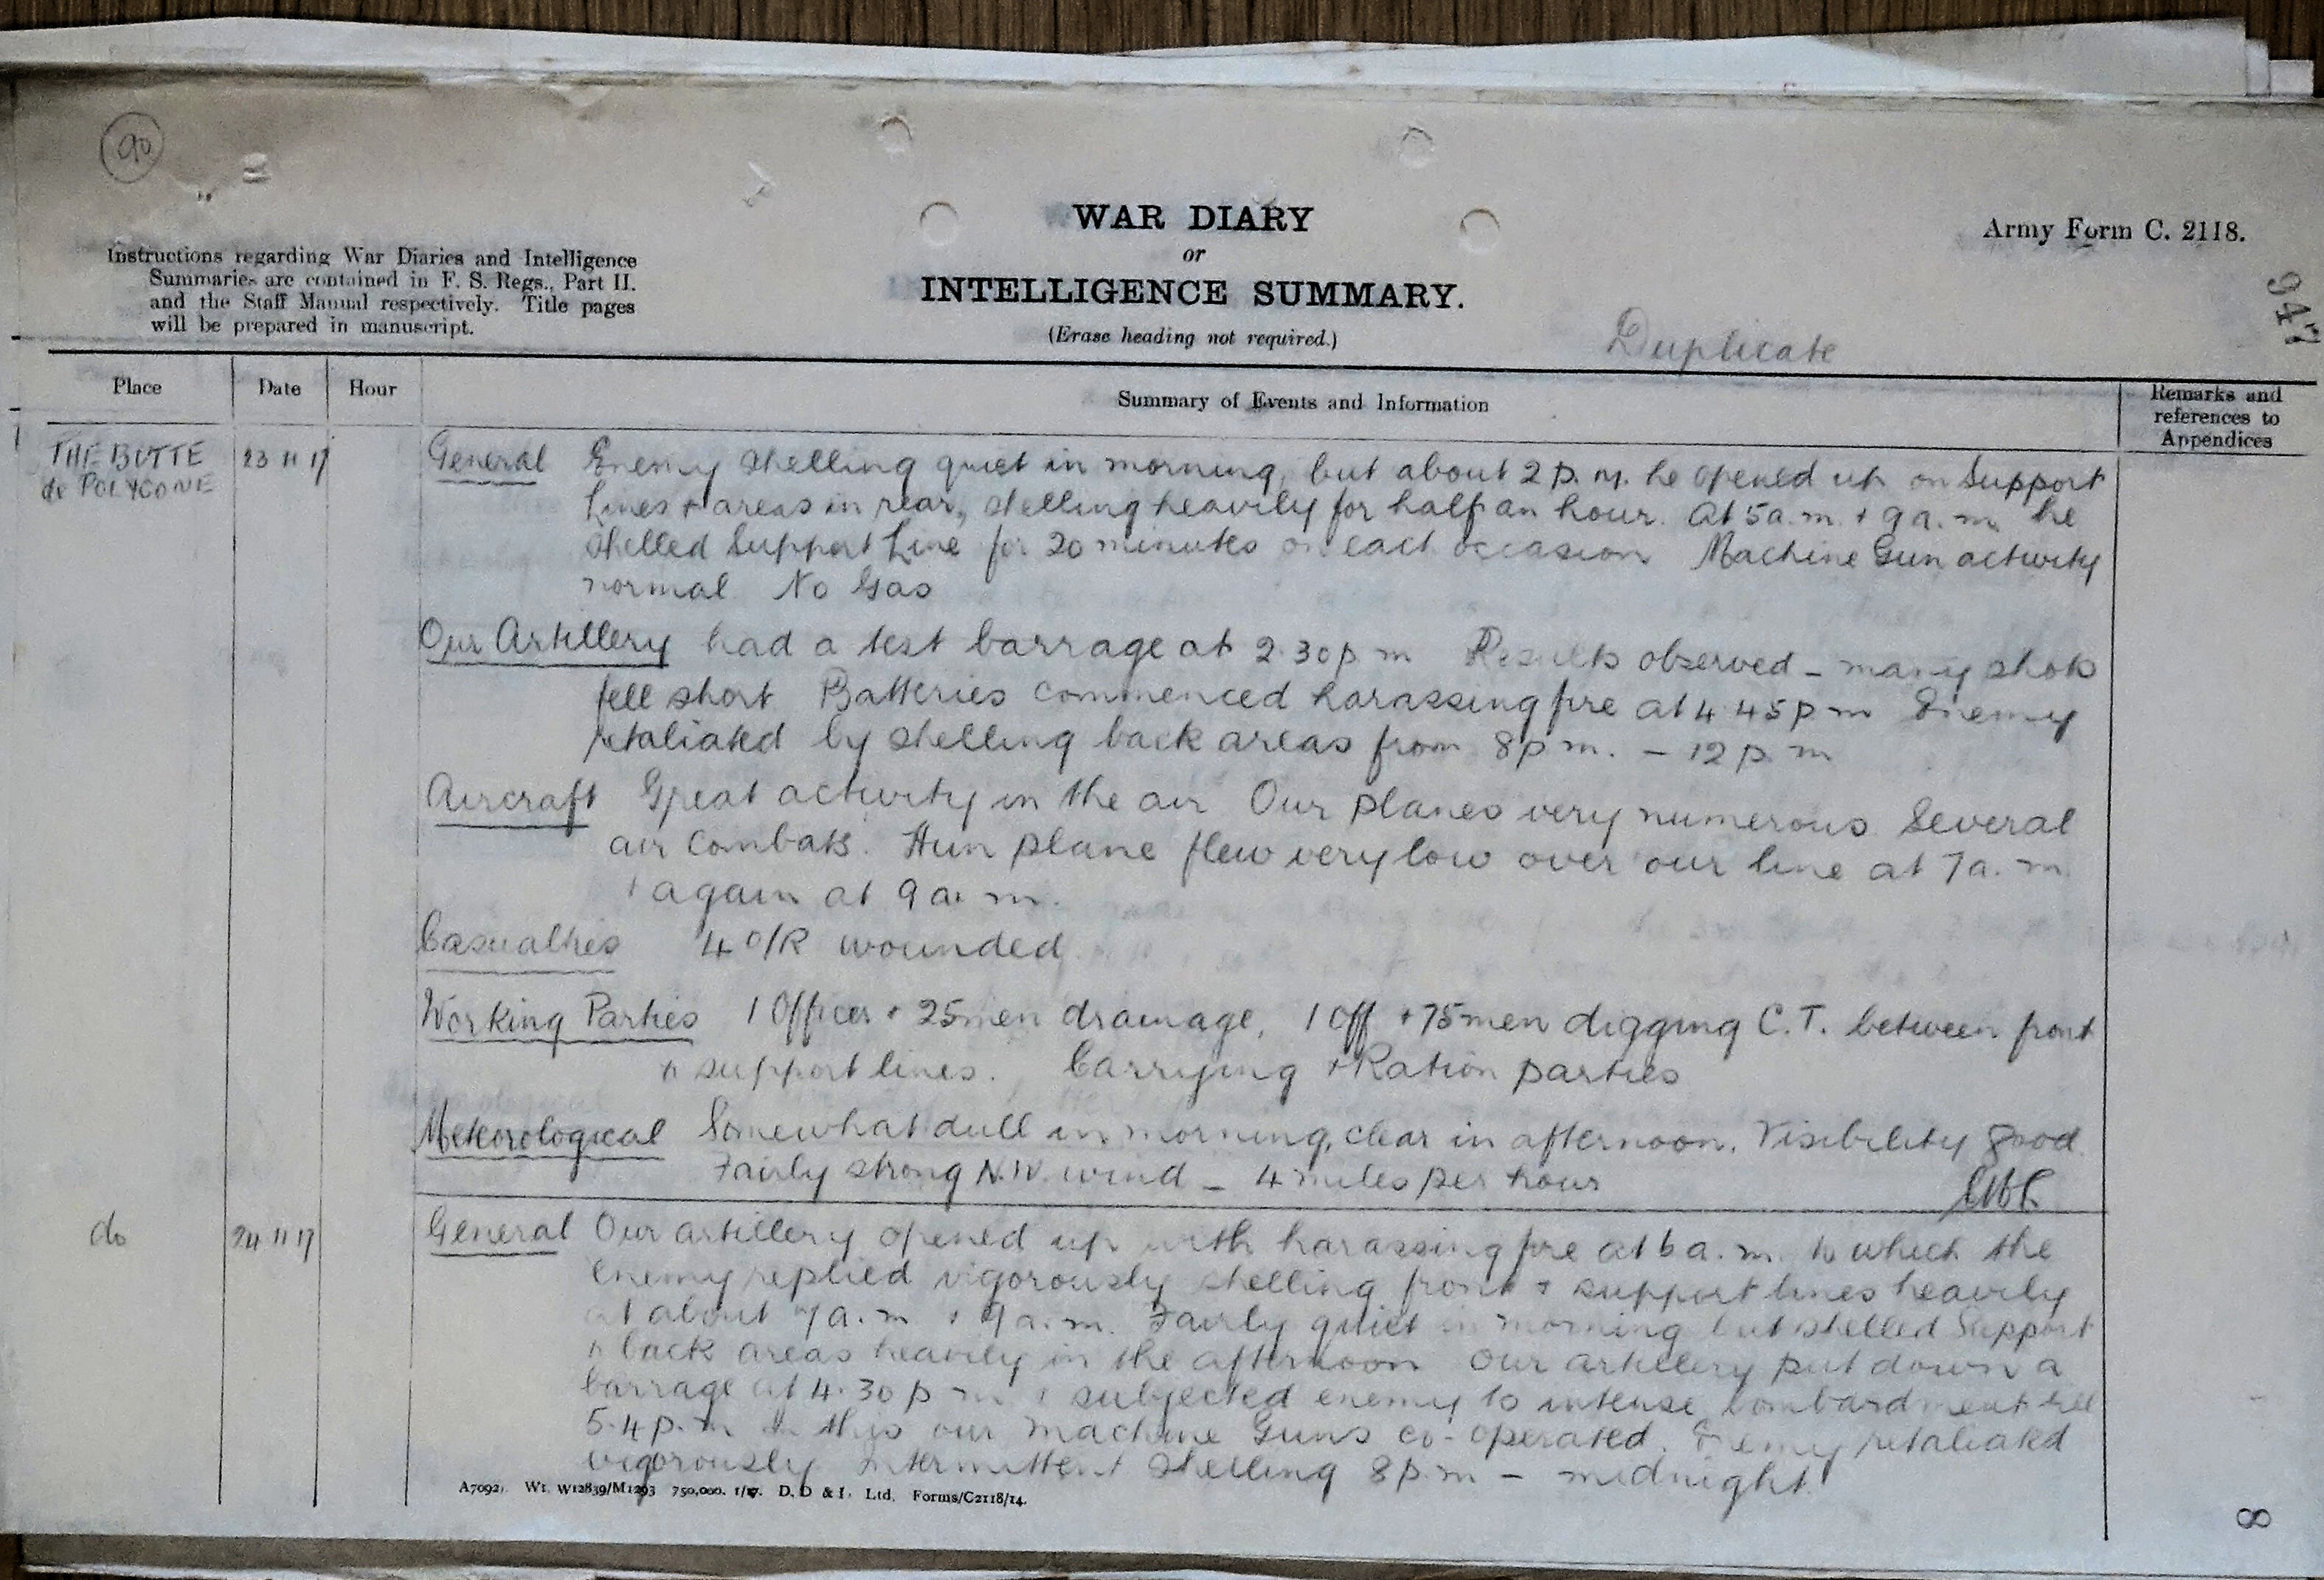 90
WAR DIARY
or
INTELLIGENCE SUMMARY.
(Erase heading not required.)
Army Form C. 2118.
Instructions regarding War Diaries and Intelligence
Summaries are contained in F. S. Regs., Part II.
and the Staff Manual respectively. Title pages
will be prepared in manuscript.
Duplicate
947
Place Date Hour Summary of Events and Information Remarks and
references to
Appendices
THE BUTTE 23 11 17
de POLYGONE
General Enemy shelling quiet in morning, but about 2 p.m. he opened up on Support
Lines + areas in rear, shelling heavily for half an hour. At 5 a.m. + 9 a.m. he
shelled Support Line for 20 minutes on each occasion Machine Gun activity
normal No Gas
Our Artillery had a test barrage at 2.30 p.m Results observed – many shots
fell short Batteries commenced harassing fire at 4 45 p m Enemy
retaliated by shelling back areas from 8 p m. – 12 p. m
Aircraft Great activity in the air Our planes very numerous Several
air combats. Hun plane flew very low over our line at 7 a. m
+ again at 9 a. m.
Casualties 4 O/R wounded
Working Parties 1 Officer + 25 men drainage, 1 Off + 75 men digging C.T. between front
+ support lines. Carrying + Ration parties
Meteorological Somewhat dull in morning, clear in afternoon. Visibility good
Fairly strong N.W. wind – 4 miles per hour
do 24 11 17
General Our artillery opened up with harassing fire at 6 a. m. to which the
enemy replied vigorously shelling front + support lines heavily
at about 7 a. m + 9 a. m. Fairly quiet in morning but shelled Support
+ back areas heavily in the afternoon Our artillery put down a
barrage at 4.30 p m + subjected enemy to intense bombardment till
5.4 p. m this our machine Guns co-operated. Enemy retaliated
vigorously Intermittent shelling 8 p.m – midnight
A7092. Wt. W12839/M1293 750,000. 1/17. D. D & L. Ltd. Forms/C2118/14.
8